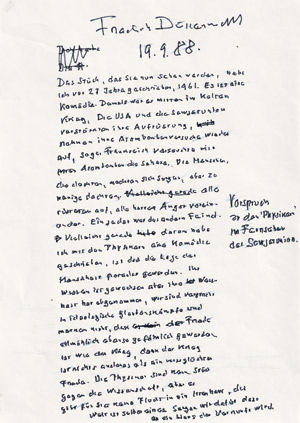 Friedrich Dürrenmatt
19.9.88.
Das Stück, das Sie nun sehen werden, habe
ich vor 27 Jahren geschrieben, 1961. Es ist eine
Komödie. Damals war er mitten im Kalten
Krieg. Die USA und die Sowjetunion
verstärkten ihre Aufrüstung,
nahmen ihre Atombombenversuche wieder
auf, sogar Frankreich versuchte
Atombomben in der Sahara. Die Menschen,
die dachten, machten sich Sorgen, aber zu
wenige dachten. Vielleicht gerade alle
rüsteten auf, alle hatten Angst vorein-
ander. Ein jeder war des andern Feind.
Vielleicht gerade darum habe
ich mit den Physikern eine Komödie
geschrieben, ist doch die Lage der
Menschheit paradox geworden. Ihr
Wissen ist gewachsen aber ihre
hat abgenommen, wir sind
in ideologische Glaubenskämpfe und
merken nicht, dass der Friede
allmählich ebenso gefährlich geworden
ist wie der Krieg, denn der Krieg
ist nichts anderes als ein verunglückter
Friede. Die Physiker sind kein Stück
gegen die Wissenschaft, aber es
gibt für Sie keine Flucht in ein Irrenhaus, die
Welt ist selber eines. Sorgen wir dafür dass
es ein Haus der Vernunft wird.
Vorspruch
zu den "Physikern"
im Fernsehen
der Sowjetunion.